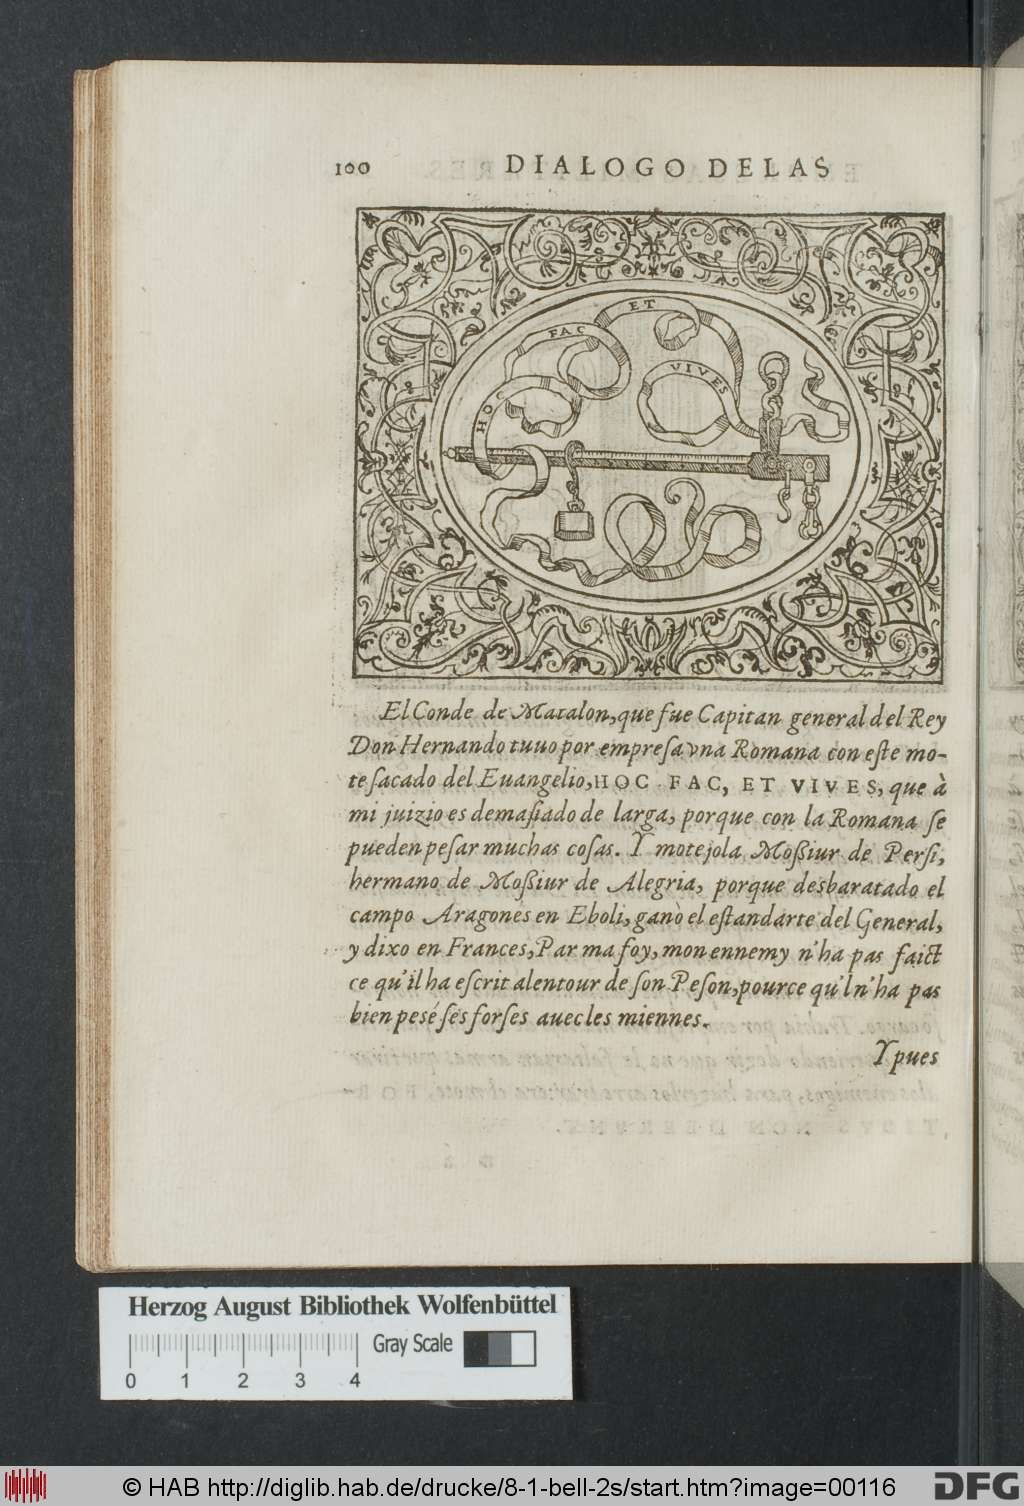 100 DIALOGO DE LAS
HOC
FAC
ET
VIVES
El Conde de Matalon, que fue Capitan general del Rey
Don Hernando tuuo por empresa vna Romana con este mo-
te sacado del Euangelio, HOC FAC, ET VIVES, que à
mi juizio es demasiado de larga, porque con la Romana se
pueden pesar muchas cosas. Y motejola Moßiur de Persi,
hermano de Moßiur de Alegria, porque desbaratado el
campo Aragones en Eboli, ganò el estandarte del General,
y dixo en Frances, Par ma foy, mon ennemy n'ha pas faict
ce qu'il ha escrit alentour de son Peson, pource qu'l n'ha pas
bien pesé sés forses auec les miennes.
Y pues
Herzog August Bibliothek Wolfenbüttel
Gray Scale
0 1 2 3 4
© HAB http://diglib.hab.de/drucke/8-1-bell-2s/start.htm?image=00116
DFG